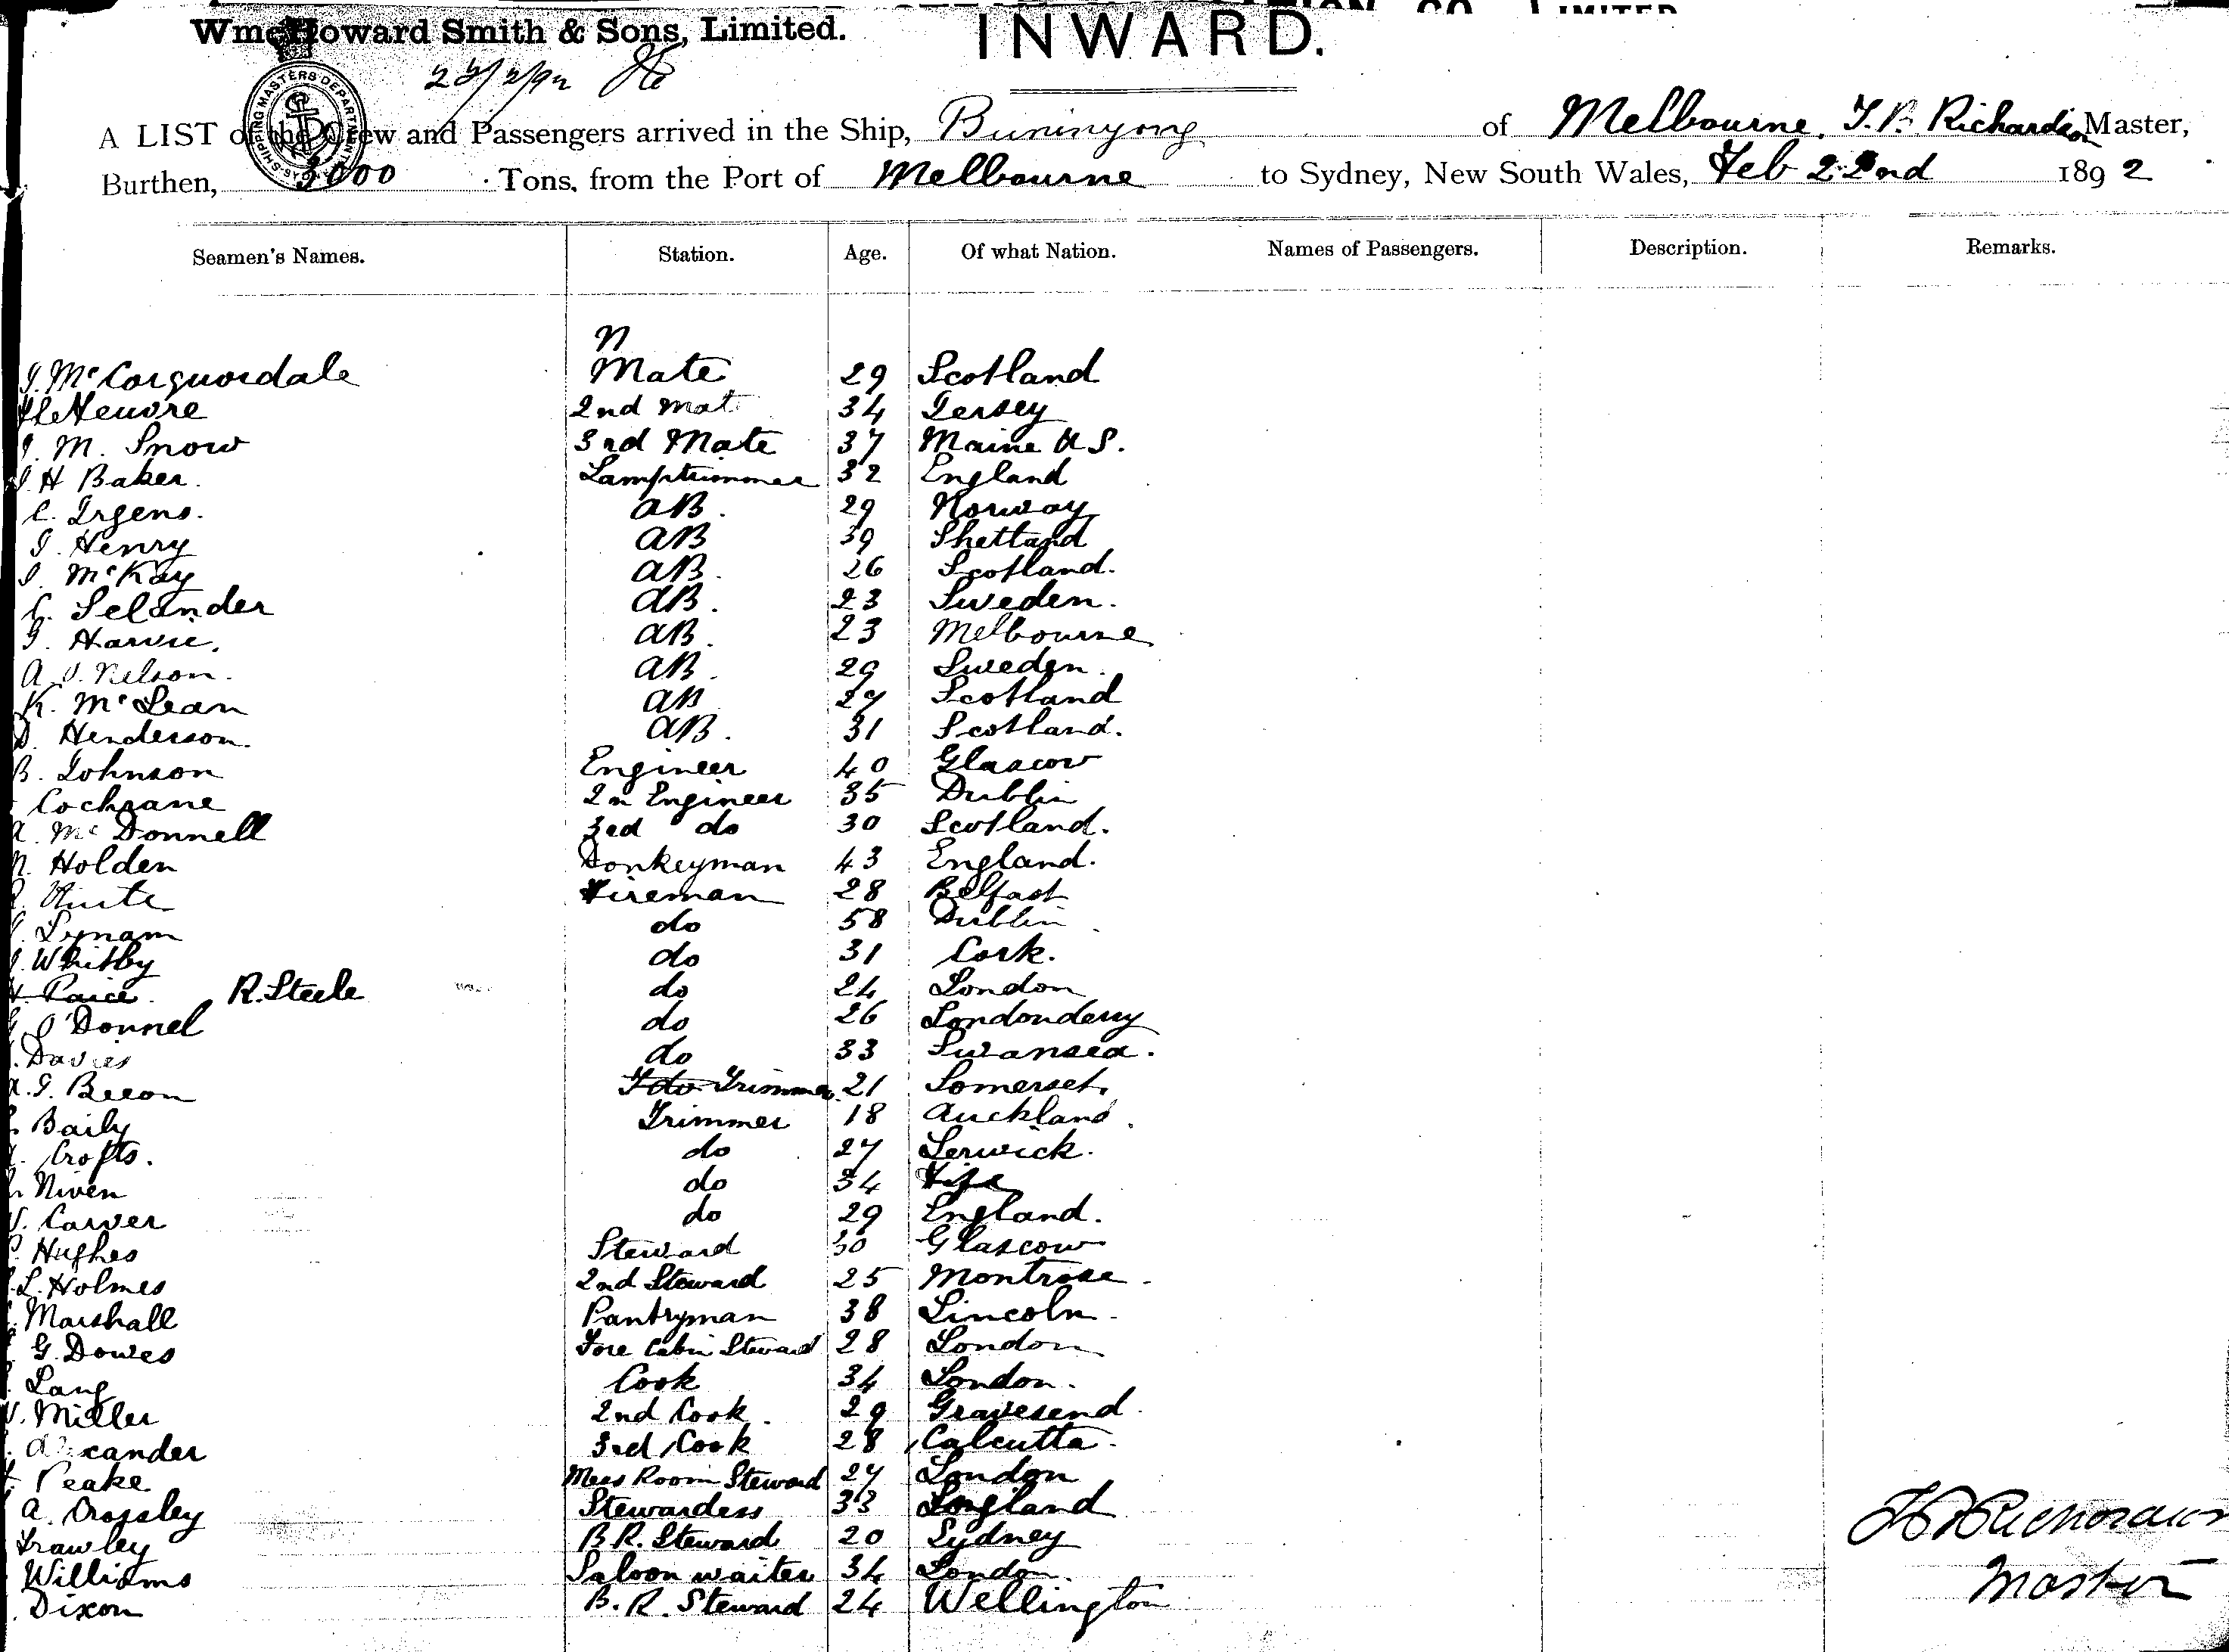 Wm Howard Smith & Sons, Limited.
INWARD.
23/2/92
SHIPPING MASTERS DEPARTMENT
A LIST of the Crew and Passengers arrived in the Ship, Buninyong of Melbourne, T.P. Richardson Master,
Burthen, 3000 Tons, from the Port of Melbourne to Sydney, New South Wales, Feb 22nd 1892
Seamen's Names. Station. Age. Of what Nation. Names of Passengers. Description. Remarks.
J. McCorquordale Mate 29 Scotland
2nd Mat 34 Jersey
J. M. Snow 3rd Mate 37 Maine U S.
J. H Baker. Lamptrimmer 32 England
C. Irgens. AB. 29 Norway
J. Henry AB 39 Shetland
J. McKay AB. 26 Scotland.
C. Selander AB. 23 Sweden.
J. Harvie. AB. 23 Melbourne
A. J. Nelson. AB. 29 Sweden.
K. McLean AB 27 Scotland
D. Henderson. AB. 31 Scotland.
B. Johnson Engineer 40 Glascow
Cochrane 2n Engineer 35 Dublin
A. McDonnell 3rd do 30 Scotland.
N. Holden Donkeyman 43 England.
Fireman 28 Belfast
Lynam do 58 Dublin
J. Whitby do 31 Cork.
Paice. R. Steele do 24 London
O'Donnel do 26 Londonderry
Davies do 33 Swansea.
A. J. Becon do Trimmer 21 Somerset.
Baily Trimmer 18 Auckland.
Crofts. do 27 Lerwick.
Niven do 34 Fife
W. Carver do 29 England.
Hughes Steward 30 Glascow
L. Holmes 2nd Steward 25 Montrose.
Marshall Pantryman 38 Lincoln.
G. Dowes Fore Cabin Steward 28 London
Lang Cook 34 London.
W. Miller 2nd Cook. 29 Gravesend.
Alexander 3rd Cook 28 Calcutta.
Peake Mess Room Steward 27 London
A. Crossley Stewardess 33 England
Frawley B.R. Steward 20 Sydney
Williams Saloon waiter 34 London.
Dixon B. R. Steward 24 Wellington
Richardson
Master